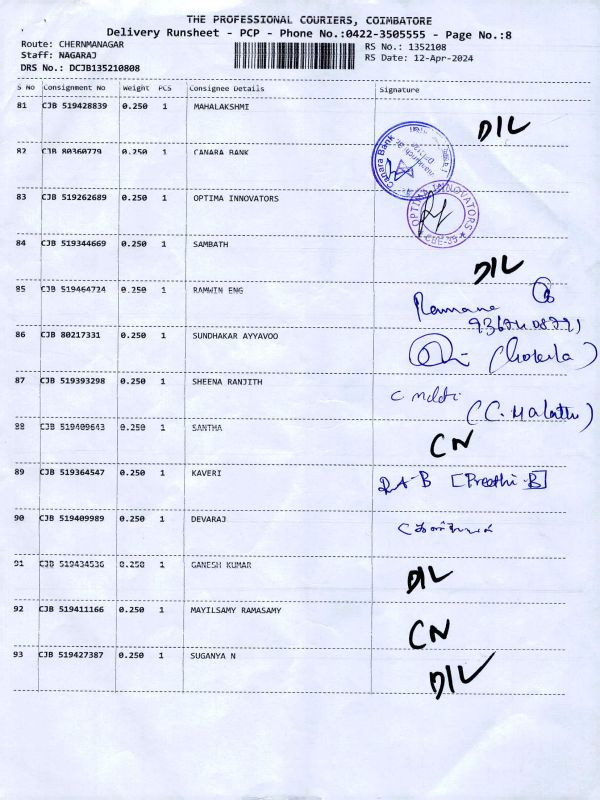 THE PROFESSIONAL COURIERS, COIMBATORE
Delivery Runsheet - PCP - Phone No.:0422-3505555 - Page No.:8
Route: CHERNMANAGAR
Staff: NAGARAJ
DRS No.: DCJB135210808
RS No.: 1352108
RS Date: 12-Apr-2024
S No Consignment No Weight PCS Consignee Details Signature
81 CJB 519428839 0.250 1 MAHALAKSHMI D/L
82 CJB 80360779 0.250 1 CANARA BANK Canara Bank
83 CJB 519262689 0.250 1 OPTIMA INNOVATORS OPTIMA INNOVATORS CBE-35
84 CJB 519344669 0.250 1 SAMBATH D/L
85 CJB 519464724 0.250 1 RAMWIN ENG Ramana
86 CJB 80217331 0.250 1 SUNDHAKAR AYYAVOO
87 CJB 519393298 0.250 1 SHEENA RANJITH (C. Malathi)
88 CJB 519409643 0.250 1 SANTHA CN
89 CJB 519364547 0.250 1 KAVERI [Preethi B]
90 CJB 519409989 0.250 1 DEVARAJ
91 CJB 519434536 0.250 1 GANESH KUMAR D/L
92 CJB 519411166 0.250 1 MAYILSAMY RAMASAMY CN
93 CJB 519427387 0.250 1 SUGANYA N D/L